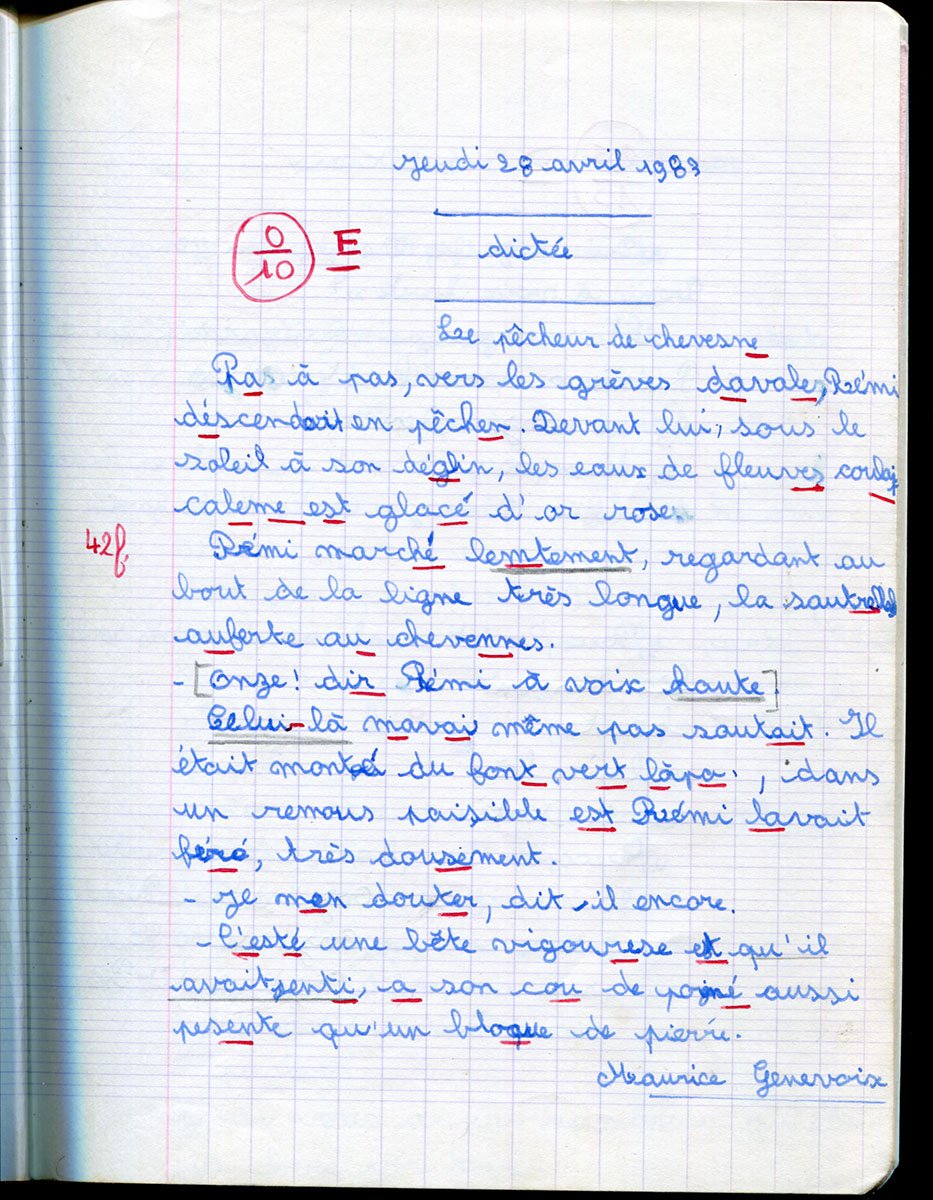 jeudi 28 avril 1983
0/10 E
dictée
Le pêcheur de chevesne
Pas à pas, vers les grèves davale, Rémi
déscendait en pêchen. Devant lui, sous le
soleil à son déglin, les eaux de fleuves coulaj
caleme est glacé d'or rose.
42f Rémi marché lemtement, regardant au
bout de la ligne très longue, la sautrelle
auferte au chevennes.
- [Onze! dir Rémi à voix haute]
Celui-là mavai même pas sautait. Il
était monté du font vert lâpa, dans
un remous paisible est Rémi lavait
féré, très dousement.
- Je men douter, dit-il encore.
- C'esté une bête vigourese et qu'il
avait senti, a son cou de poiné aussi
pesente qu'un bloque de pierre.
Maurice Genevoix